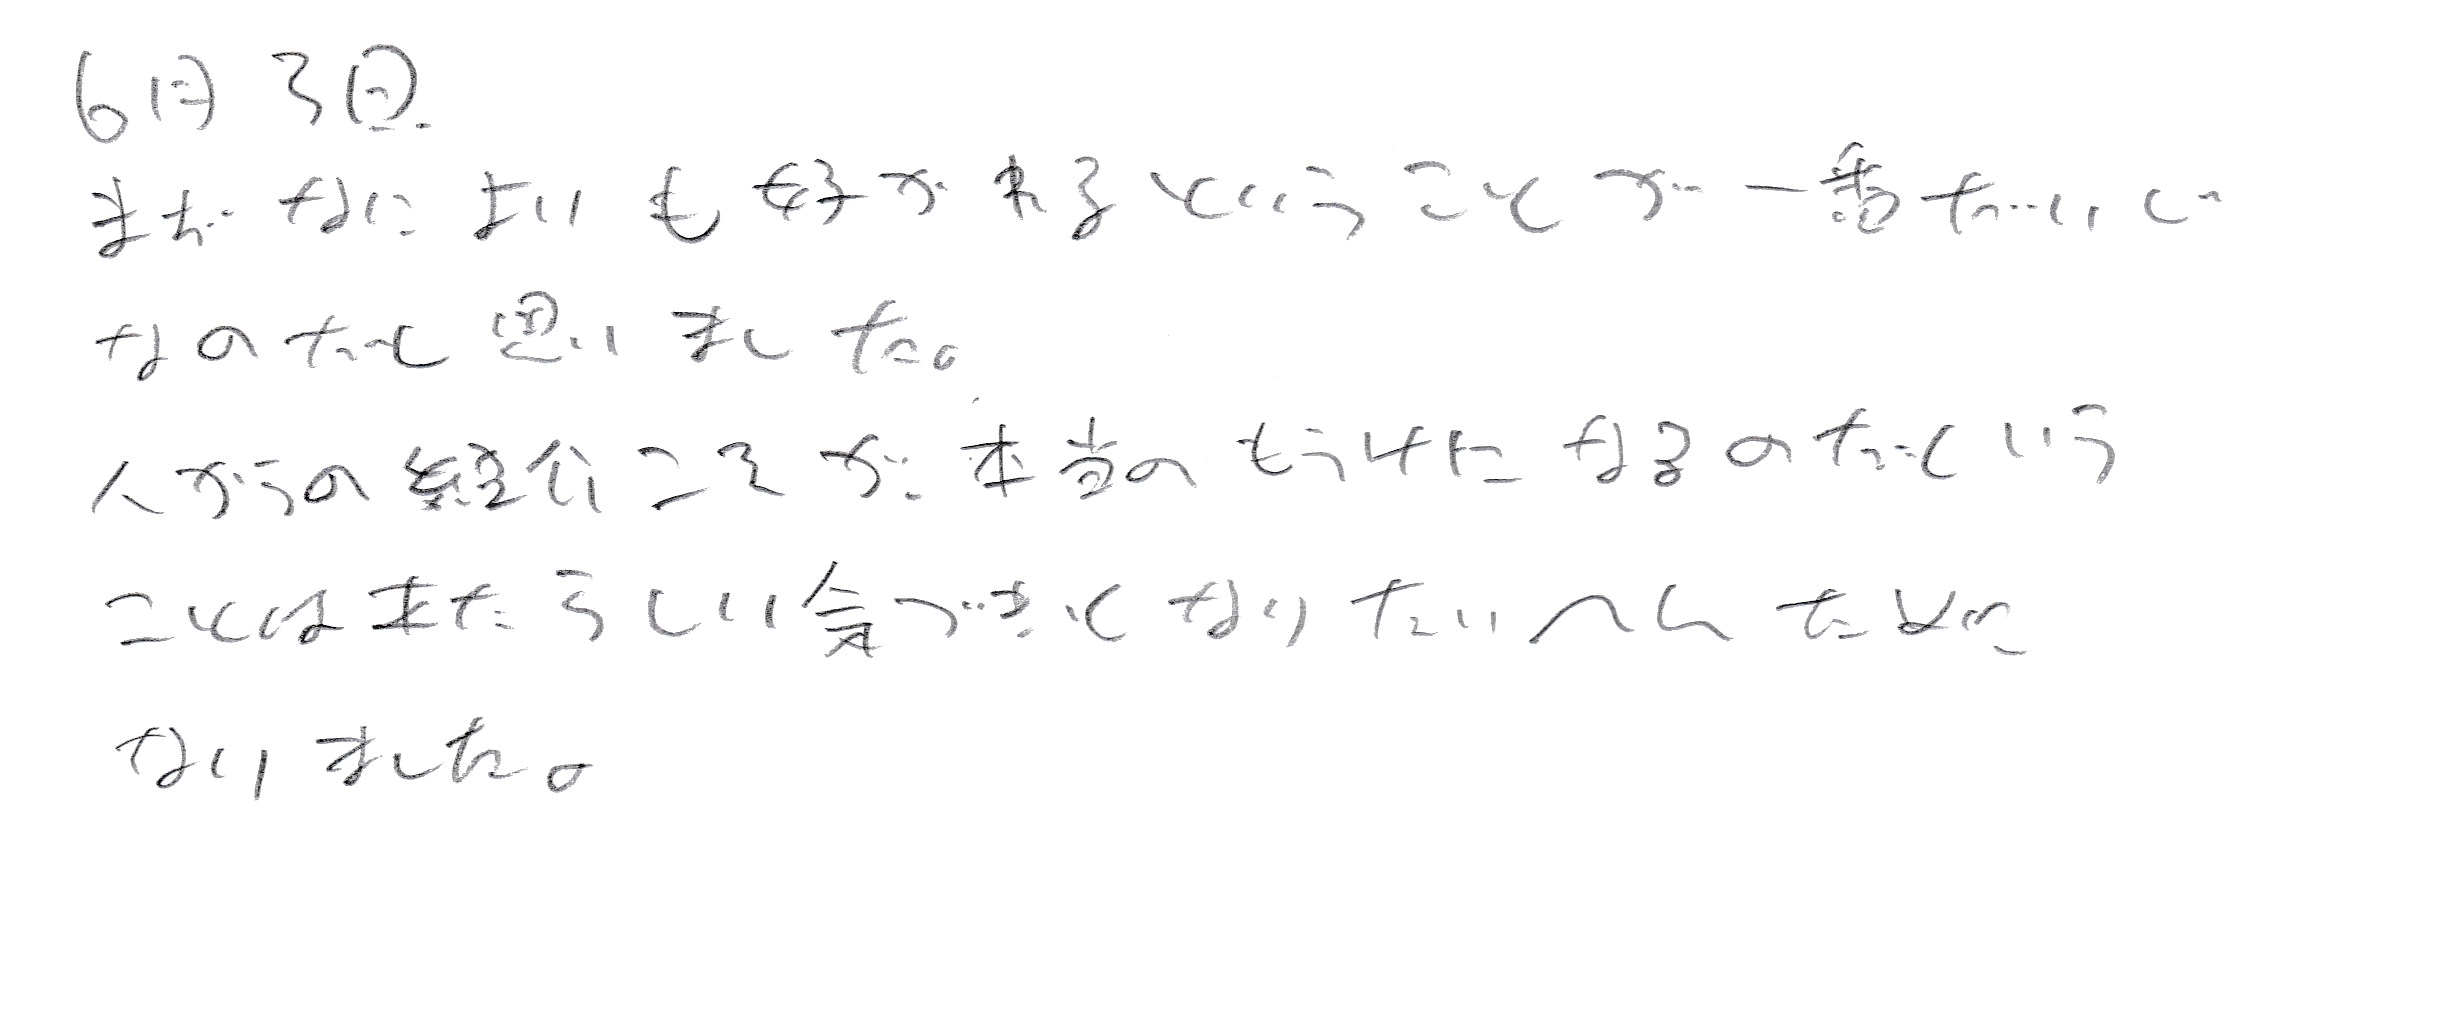 6月3日.
まずなによりも好かれるということが一番だいじ
なのだと思いました。
人からの経信こそが本当のもうけになるのだという
ことはまたうしい気づきとなりたいへんために
なりました。